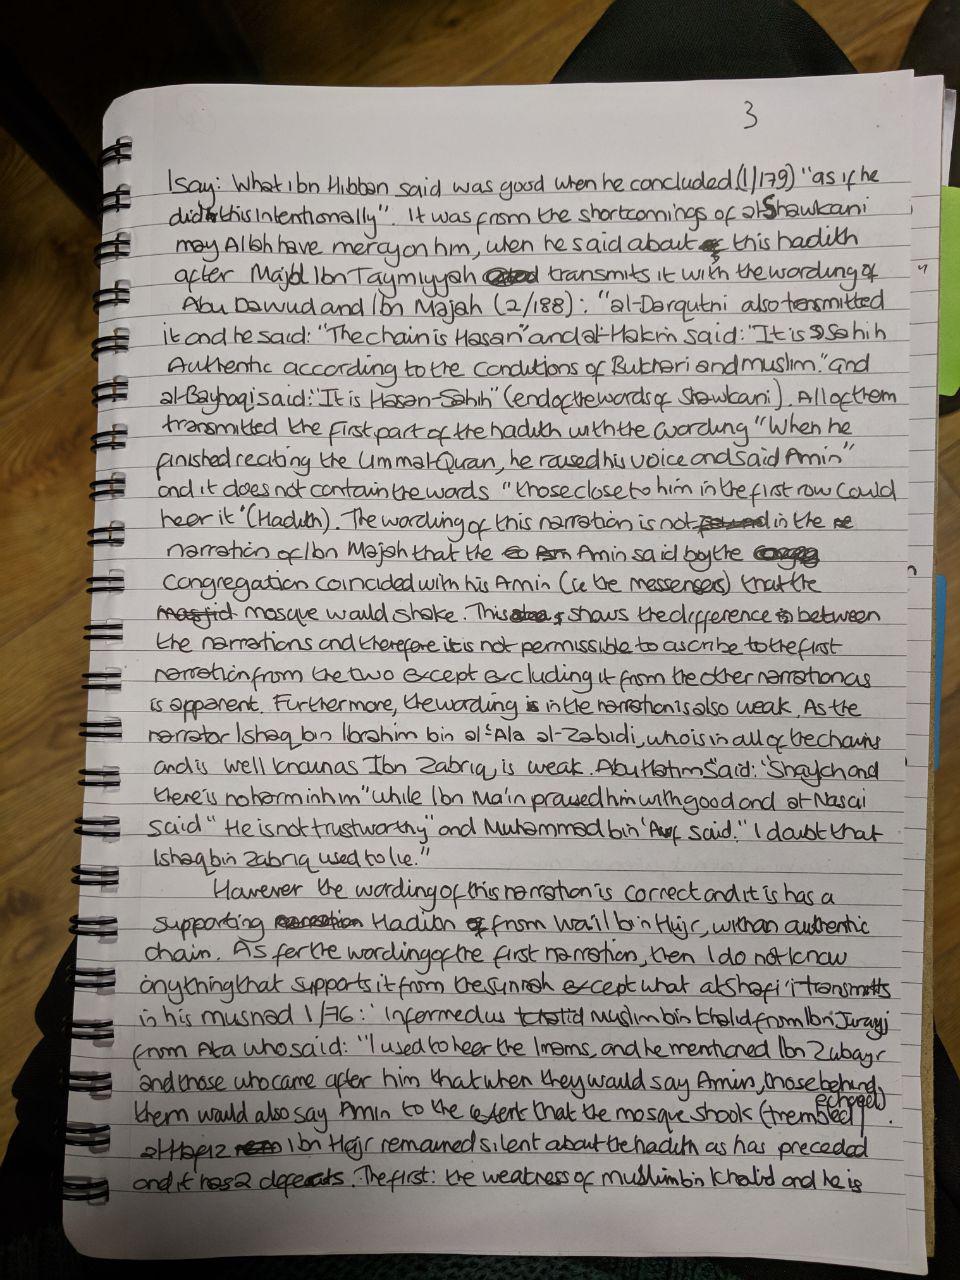 3
I say: What Ibn Hibban said was good when he concluded (1/179) "as if he
did this intentionally". It was from the shortcomings of al Shawkani
may Allah have mercy on him, when he said about this hadith
after Majd Ibn Taymiyyah transmits it with the wording of
Abu Dawud and Ibn Majah (2/188): "al-Darqutni also transmitted
it and he said: "The chain is Hasan" and al-Hakim said: "It is Sahih
Authentic according to the conditions of Bukhari and muslim." and
al-Bayhaqi said: "It is Hasan-Sahih" (end of the words of Shawkani). All of them
transmitted the first part of the hadith with the wording "When he
finished reciting the Ummal-Quran, he raised his voice and said Amin"
and it does not contain the words "those close to him in the first row could
hear it" (Hadith). The wording of this narration is not in the
narration of Ibn Majah that the Amin said by the
congregation coincided with his Amin (ie the messengers) that the
mosque would shake. This shows the difference between
the narrations and therefore it is not permissible to ascribe to the first
narration from the two except excluding it from the other narration as
is apparent. Furthermore, the wording in the narration is also weak. As the
narrator Ishaq bin Ibrahim bin al-'Ala al-Zabidi, who is in all of the chains
and is well known as Ibn Zabriq, is weak. Abu Hatim said: "Shaych and
there is no harm in him" while Ibn Ma'in praised him with good and al-Nasai
said "He is not trustworthy" and Muhammad bin 'Auf said: "I doubt that
Ishaq bin Zabriq used to lie."
However the wording of this narration is correct and it is has a
supporting Hadith from Wa'il bin Hujr, with an authentic
chain. As for the wording of the first narration, then I do not know
anything that supports it from the sunnah except what al Shafi'i transmits
in his musnad 1/76: "informed us Muslim bin Khalid from Ibn Jurayj
from Ata who said: "I used to hear the Imams, and he mentioned Ibn Zubayr
and those who came after him that when they would say Amin, those behind
them would also say Amin to the extent that the mosque shook (trembled, echoed).
al Hafiz Ibn Hajr remained silent about the hadith as has preceded
and it has 2 defects. The first: the weakness of muslim bin Khalid and he is